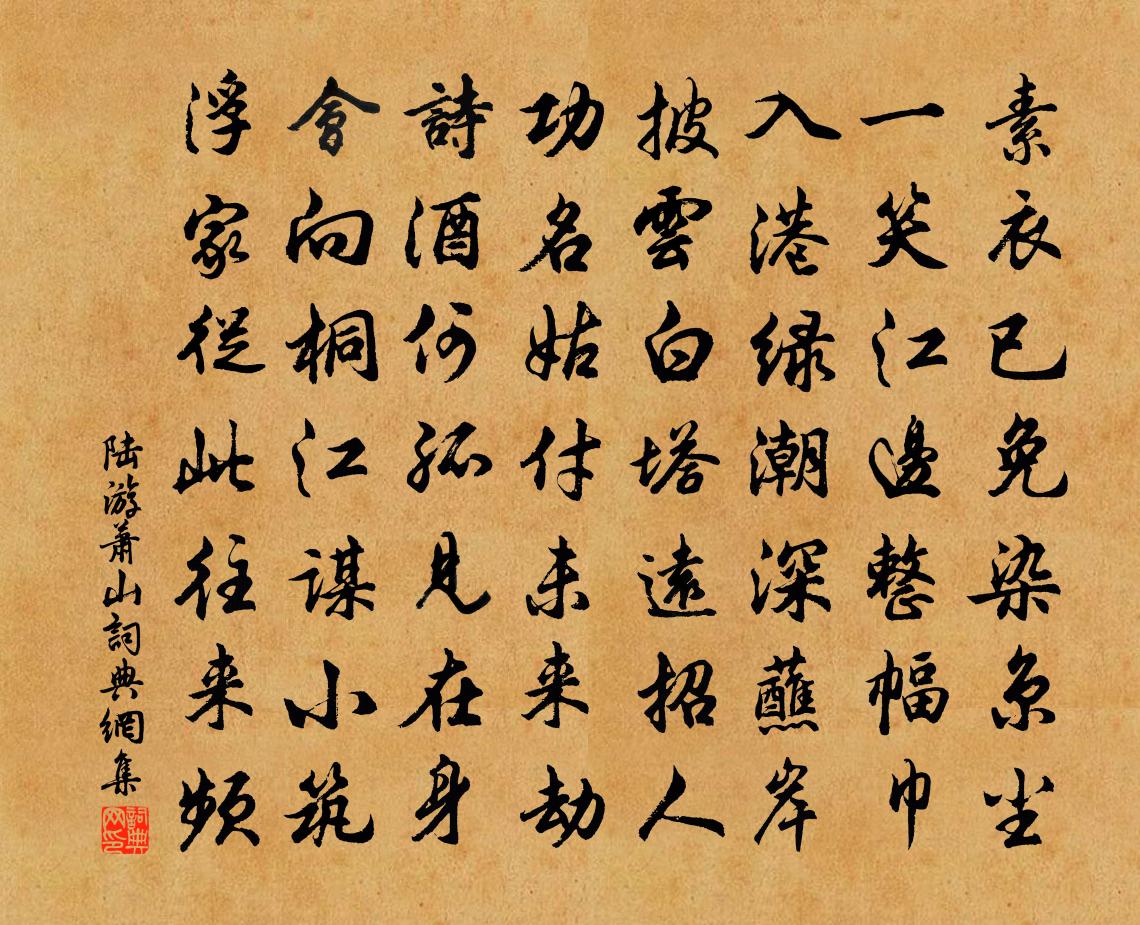 素衣已免染京尘
一笑江邊整幅巾
入港绿潮深蘸岸
披雲白塔遠招人
功名姑付未来劫
詩酒何孤見在身
會向桐江謀小筑
浮家従此往来频
陆游萧山詞典網集
詞典網印